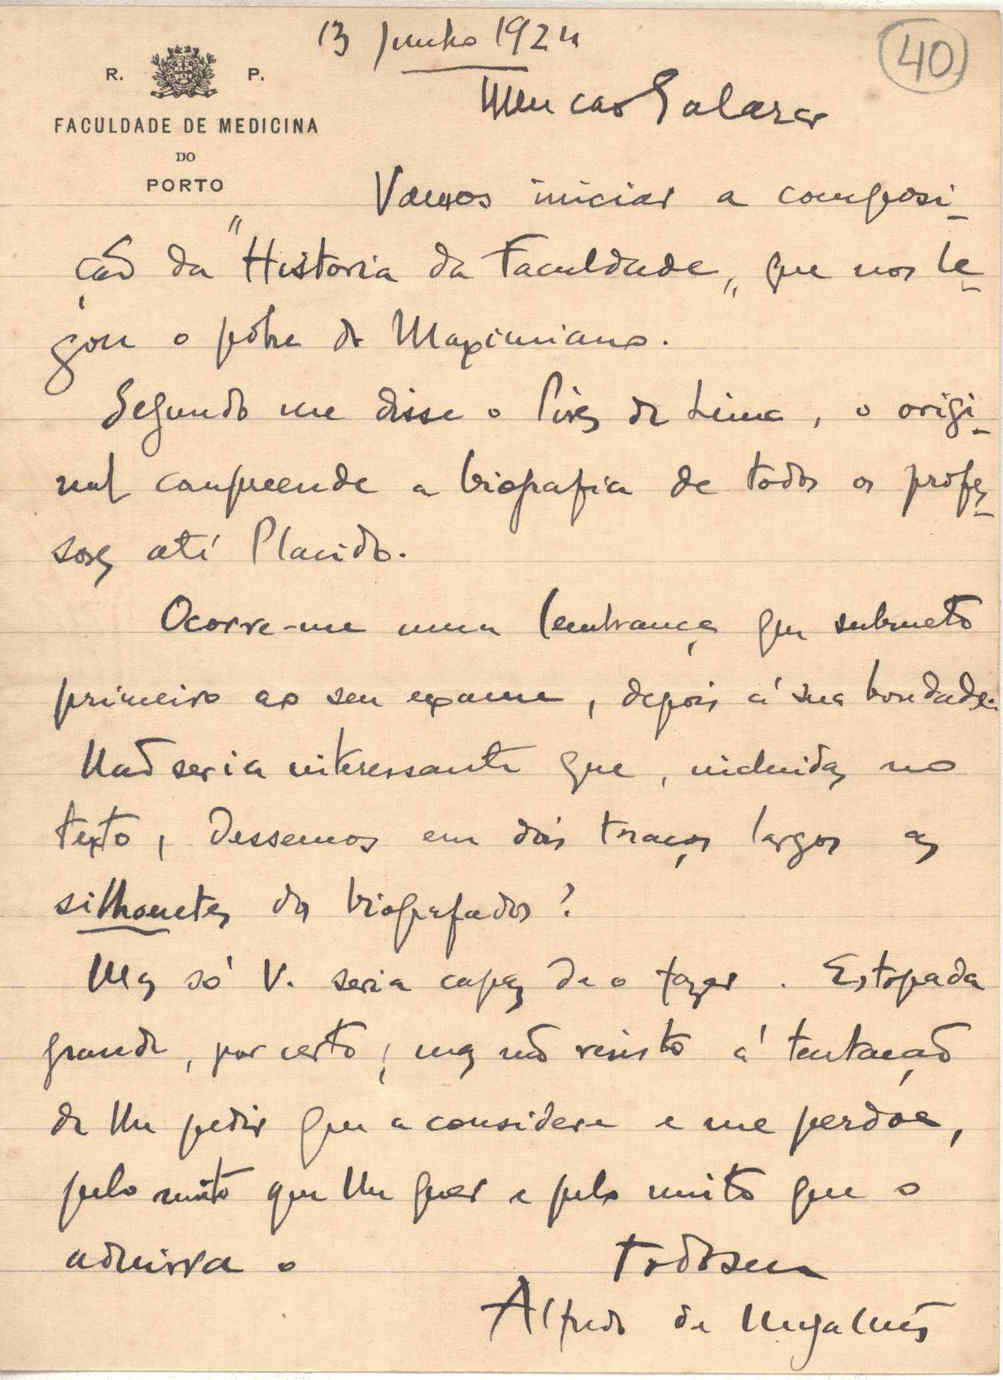 13 Junho 1924
40
R. P.
FACULDADE DE MEDICINA
DO
PORTO
Meu caro Salazar
Vamos iniciar a composi-
ção da "Historia da Faculdade", que nos le-
gou o pôbre do Maximiano.
Segundo me disse o Pires de Lima, o origi-
nal compreende a biografia de todos os profes-
sores até Placido.
Ocorre-me uma lembrança que submeto
primeiro ao seu exame, depois á sua bondade.
Não seria interessante que, incluidas no
texto, dessemos em dois traços largos as
silhouetes dos biografados?
Mas só V. seria capaz de o fazer. Estopada
grande, por certo; mas não resisto á tentação
de lhe pedir que a considere e me perdôe,
pelo muito que lhe quer e pelo muito que o
admira o
Todo seu
Alfredo de Magalhães